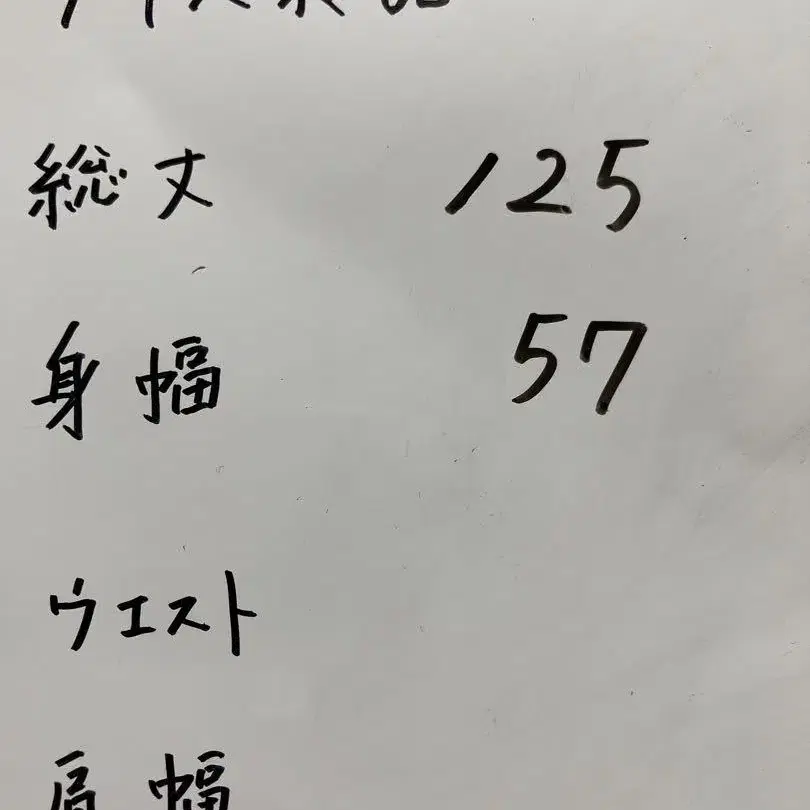 総丈 125
身幅 57
ウエスト
肩幅